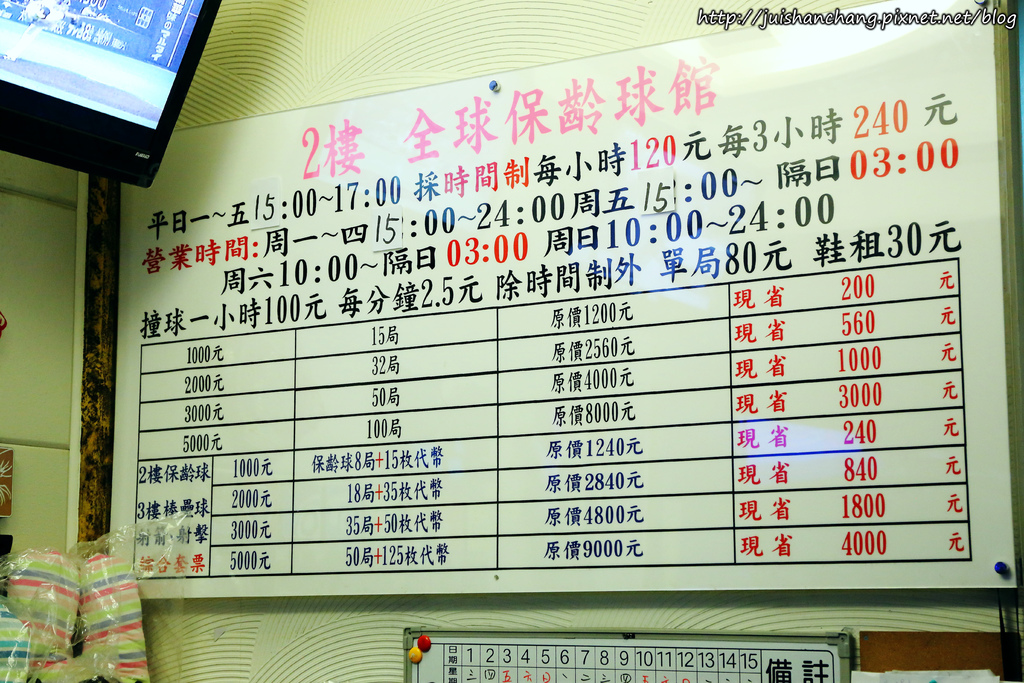 http://juishanchang.pixnet.net/blog
2樓 全球保齡球館
平日一~五15:00~17:00 採時間制每小時120元每3小時240元
營業時間:周一~四15:00~24:00周五15:00~隔日03:00
周六10:00~隔日03:00 周日10:00~24:00
撞球一小時100元 每分鐘2.5元 除時間制外 單局80元 鞋租30元
1000元 15局 原價1200元 現省 200 元
2000元 32局 原價2560元 現省 560 元
3000元 50局 原價4000元 現省 1000 元
5000元 100局 原價8000元 現省 3000 元
2樓保齡球 1000元 保齡球8局+15枚代幣 原價1240元 現省 240 元
3樓棒壘球 2000元 18局+35枚代幣 原價2840元 現省 840 元
射箭.射擊 3000元 35局+50枚代幣 原價4800元 現省 1800 元
綜合套票 5000元 50局+125枚代幣 原價9000元 現省 4000 元
日期 1 2 3 4 5 6 7 8 9 10 11 12 13 14 15 備註
星期